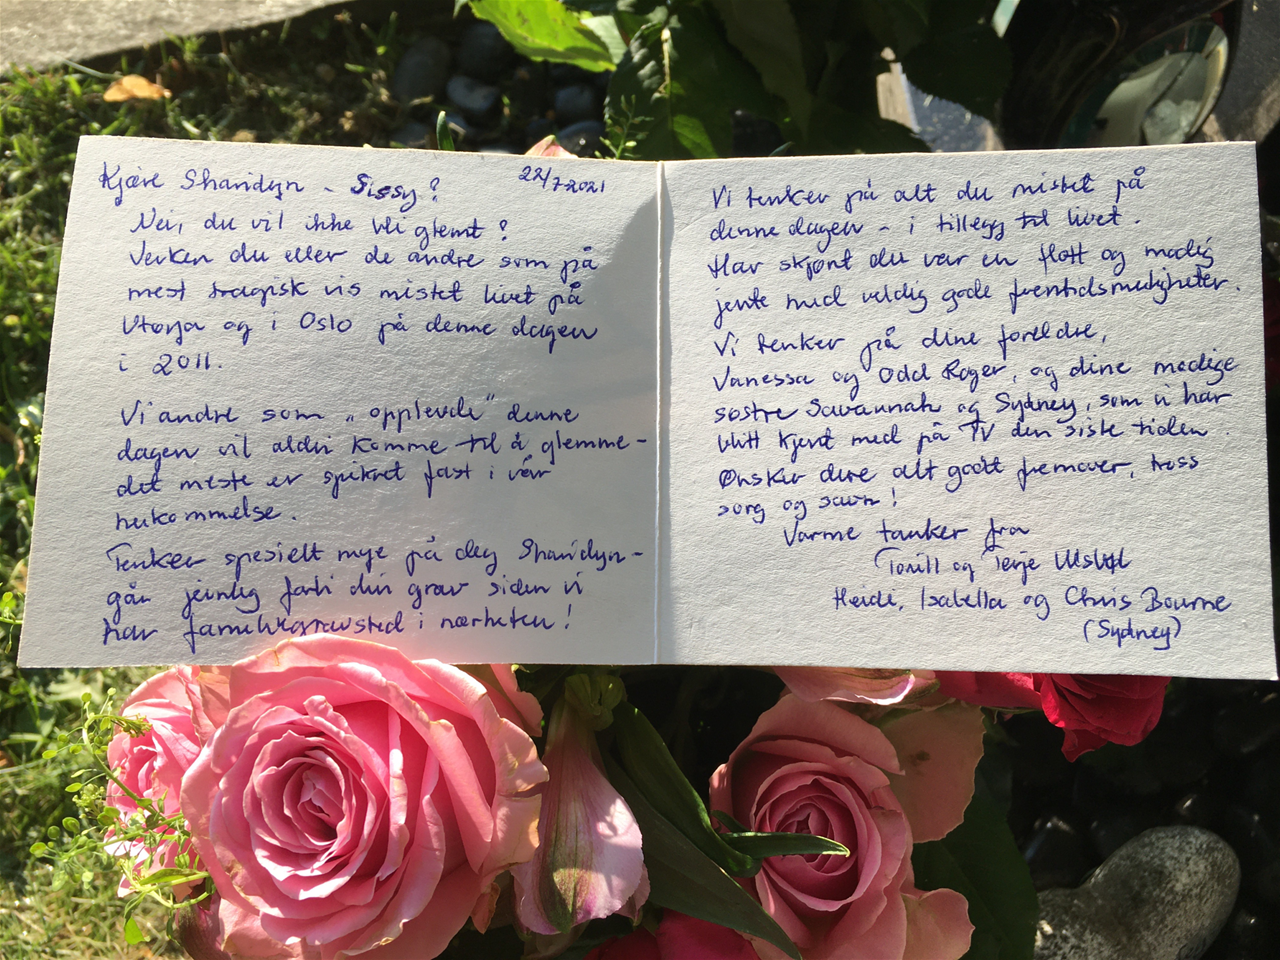 Kjære Sharidyn - Sissy?
22/7-2021
Nei, du vil ikke bli glemt?
Verken du eller de andre som på
mest tragisk vis mistet livet på
Utøya og i Oslo på denne dagen
i 2011.
Vi andre som „opplevde" denne
dagen vil aldri komme til å glemme -
det meste er spikret fast i vår
hukommelse.
Tenker spesielt mye på deg Sharidyn -
går jevnlig forbi din grav siden vi
har familiegravsted i nærheten!
Vi tenker på alt du mistet på
denne dagen - i tillegg til livet.
Har skjønt du var en flott og modig
jente med veldig gode fremtidsmuligheter.
Vi tenker på dine foreldre,
Vanessa og Odd Roger, og dine modige
søstre Savannah og Sydney, som vi har
blitt kjent med på TV den siste tiden
Ønsker dere alt godt fremover, tross
sorg og savn!
Varme tanker fra
Torill og Terje Ulsbøl
Heidi, Isabella og Chris Bourne
(Sydney)